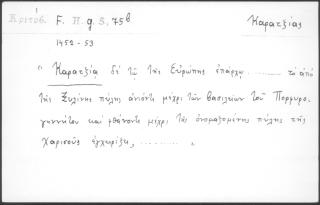 Κριτόβ. F. H. g. 3, 75b
Καρατζίας
1452-53
" Καρατζία δὲ τῷ τῆς Εὐρώπης ἐπάρχῳ .......... τὰ ἀπὸ
τῆς Ξυλίνης πύλης ἀνιόντι μέχρι τῶν βασιλείων τοῦ Πορφυρο-
γεννήτου καὶ φθάνοντι μέχρι τῆς ὀνομαζομένης πύλης τῆς
Χαρισοῦς ἐγχειρίζει, .......... "